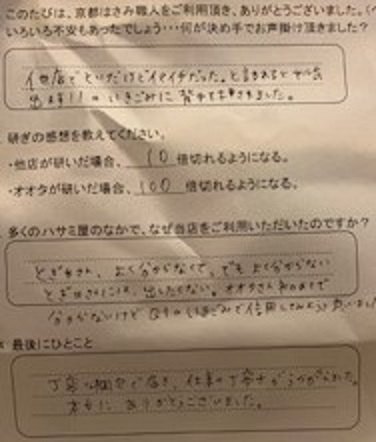 このたびは、京都はさみ職人をご利用頂き、ありがとうございました。
いろいろ不安もあったでしょう・・・何が決め手でお声掛け頂きました?
他店でといだけどイマイチだった。と言われると
出ます!!の いきごみに 背中を押されました。
研ぎの感想を教えてください。
・他店が研いだ場合、10倍切れるようになる。
・オオタが研いだ場合、100倍切れるようになる。
多くのハサミ屋のなかで、なぜ当店をご利用いただいたのですか?
とぎやさん、よく分からなくて、でもよく分からない
とぎやさんには、出したくない。オオタさん
分からないけど いきごみで信用してみようと思いました
最後にひとこと
丁寧な梱包で届き、仕事の丁寧さがうかがわれた。
本当に ありがとうございました。